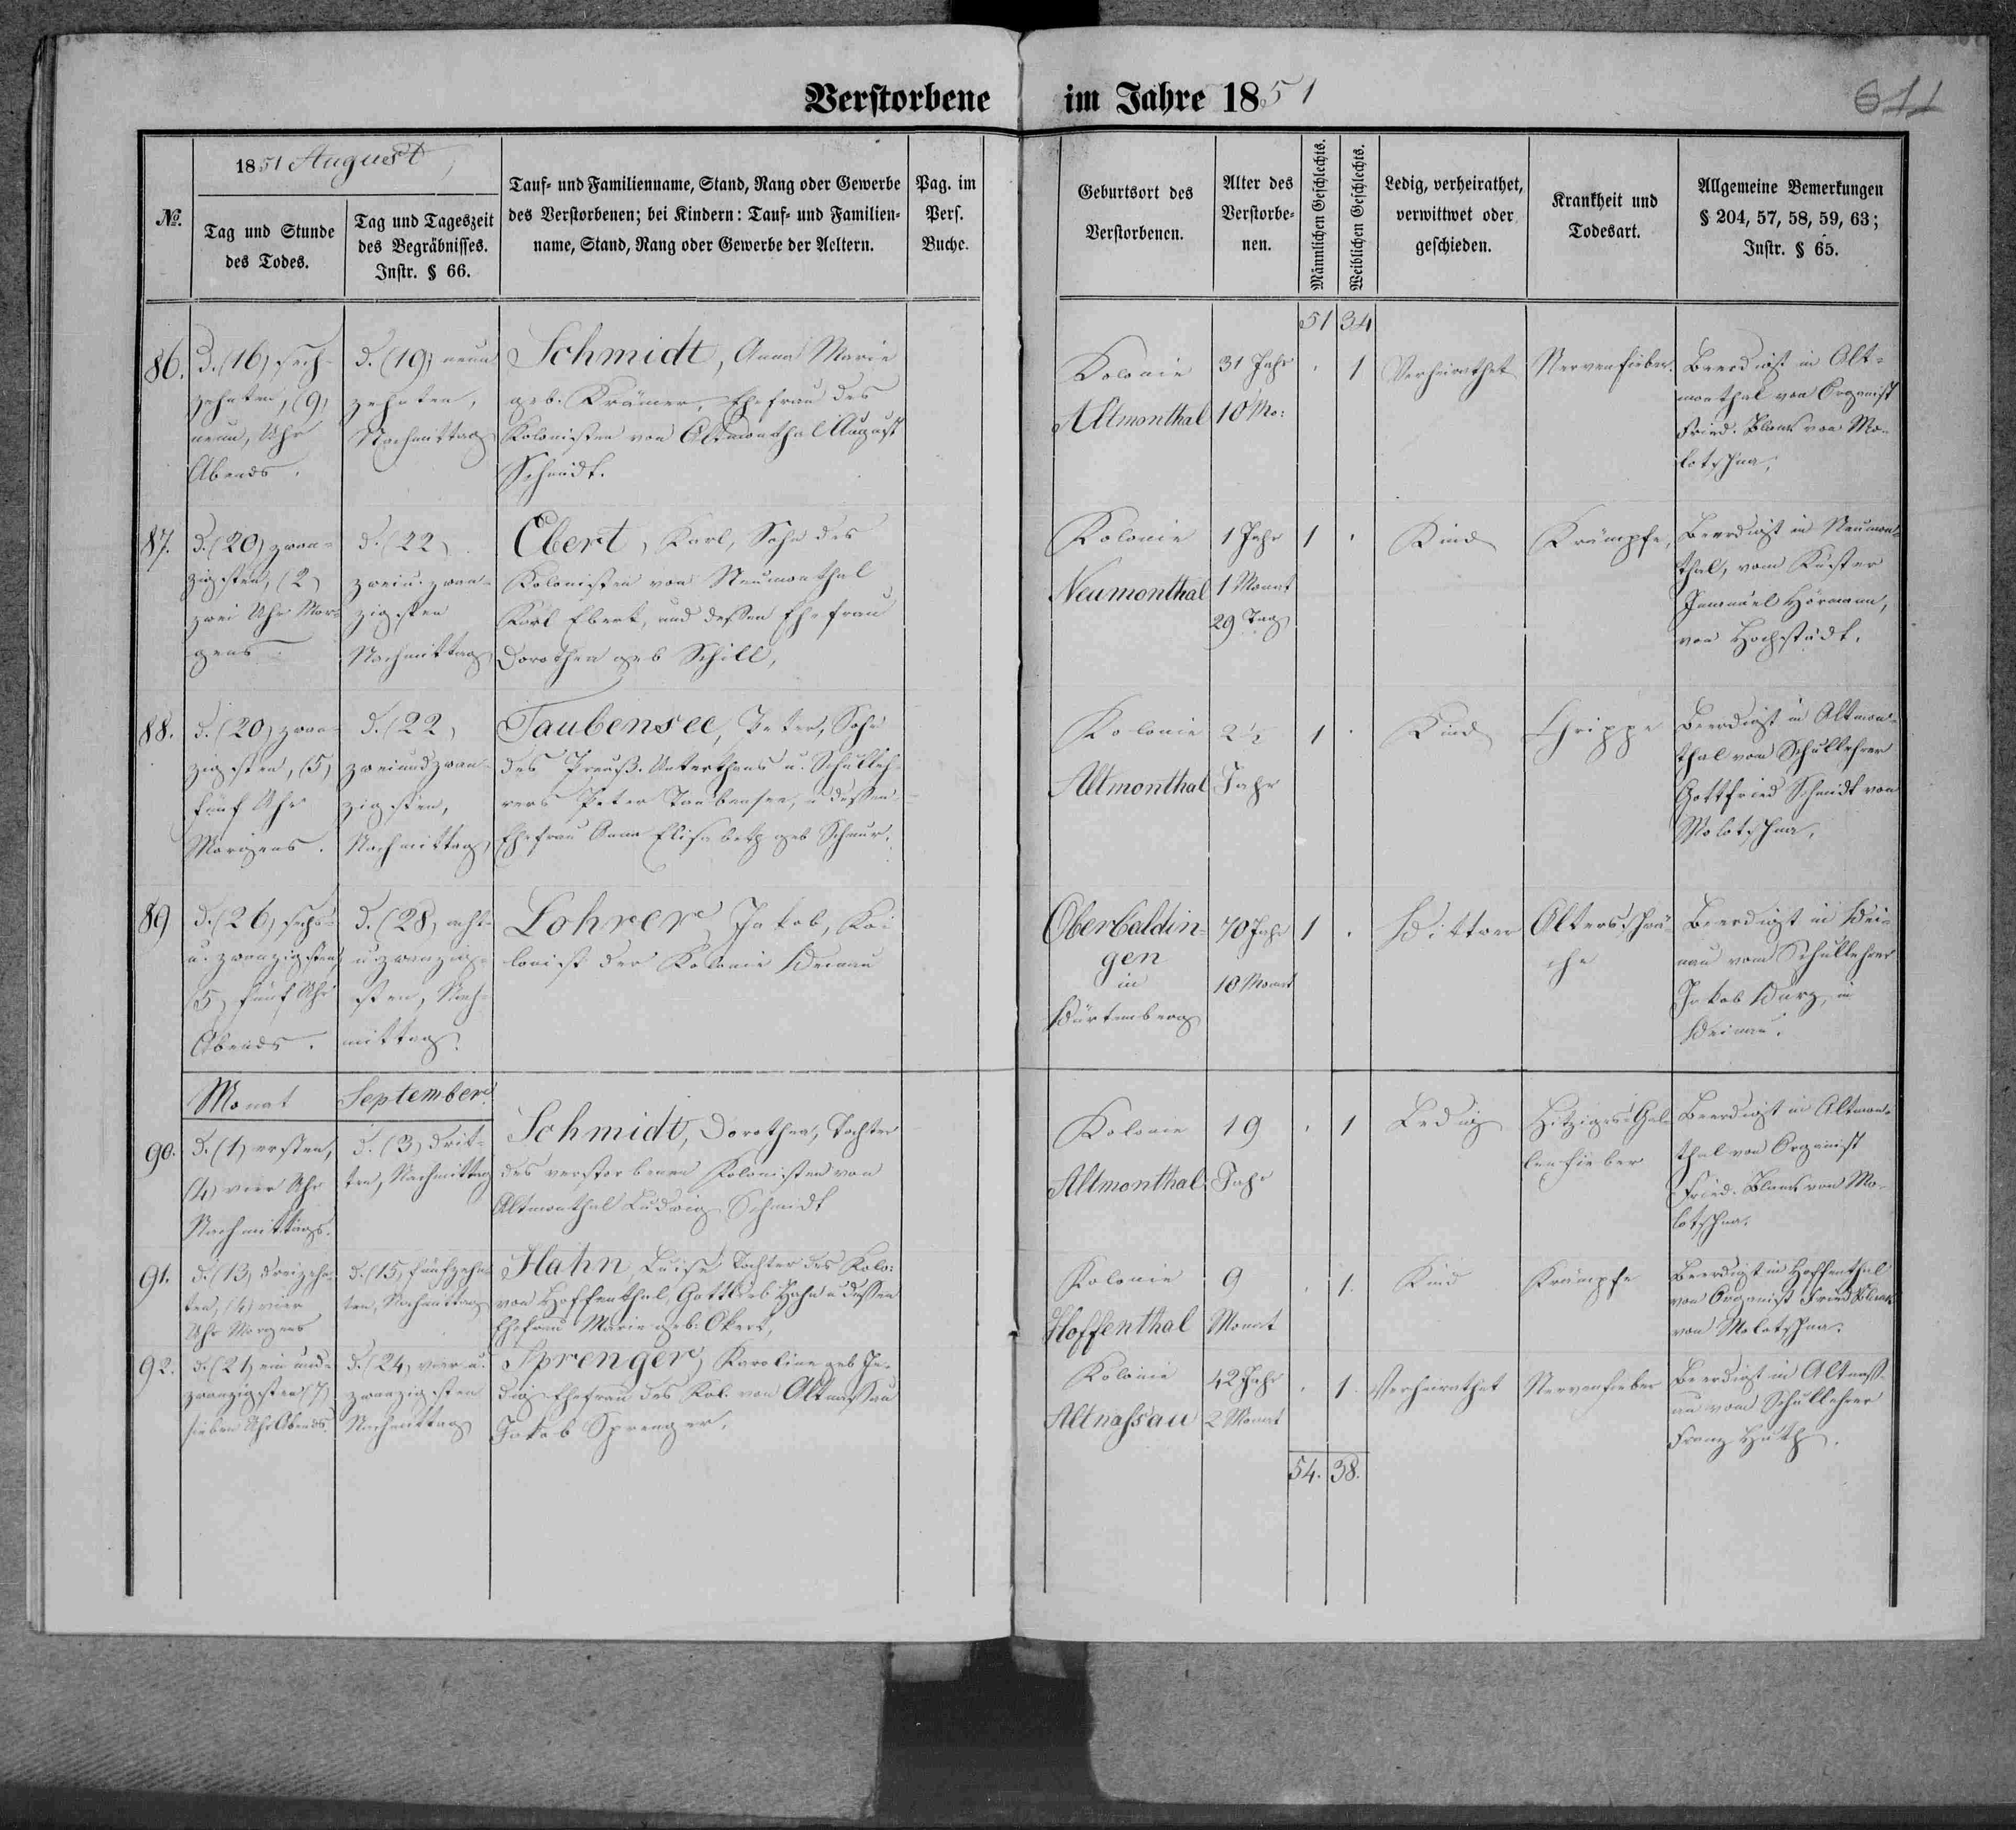 Verstorbene im Jahre 1851
611
1851 August
№.
Tag und Stunde
des Todes.
Tag und Tageszeit
des Begräbnisses.
Instr. § 66.
Tauf- und Familienname, Stand, Rang oder Gewerbe
des Verstorbenen; bei Kindern: Tauf- und Familien-
name, Stand, Rang oder Gewerbe der Aeltern.
Pag. im
Pers.
Buche.
Geburtsort des
Verstorbenen.
Alter des
Verstorbe-
nen.
Männlichen Geschlechts.
Weiblichen Geschlechts.
Ledig, verheirathet,
verwittwet oder
geschieden.
Krankheit und
Todesart.
Allgemeine Bemerkungen
§ 204, 57, 58, 59, 63;
Instr. § 65.
51 34
86.
d. (16) sech-
zehnten, (9)
neun, Uhr
Abends.
d. (19) neun
zehnten,
Nachmittag
Schmidt, Anna Marie
geb. Krämer, Ehefrau des
Kolonisten von Altmonthal August
Schmidt.
Kolonie
Altmonthal
31 Jahr
10 Mo:
1
Verheirathet
Nervenfieber.
Beerdigt in Alt-
monthal von Organist
Fried. von Mo-
lotschna,
87.
d. (20) zwan-
zigsten, (2)
zwei Uhr Mor-
gens
d. (22)
zweiu. zwan-
zigsten
Nachmittag
Ebert, Karl, Sohn des
Kolonisten von Neumonthal
Karl Ebert, und dessen Ehefrau
Dorothea geb Schill,
Kolonie
Neumonthal
1 Jahr
1 Monat
29 Tag
1
Kind
Krämpfe,
Beerdigt in Neumon-
thal, vom Küster
Imanuel Hörmann,
von Hochstädt.
88.
d. (20) zwan-
zigsten, (5)
fünf Uhr
Morgens.
d. (22)
zweiundzwan-
zigsten,
Nachmittag,
Taubensee, Peter, Sohn
des Preuß. Unterthans u. Schulleh-
rers Peter Taubensee, u dessen
Ehefrau Anna Elisabeth geb Schnur.
Kolonie
Altmonthal
2½
Jahr
1
Kind
Grippe
Beerdigt in Altmon-
thal vom Schullehrer
Gottfried Schmidt von
Molotschna,
89
d. (26) sechs-
u. zwanzigsten,
(5) fünf Uhr
Abends.
d. (28) acht-
u. zwanzig-
sten, Nach-
mittag.
Lohrer, Jakob, Ko-
lonist der Kolonie Weinau
Oberbaldin-
gen
in
Würtemberg
70 Jahr
10 Monat
1
Wittwer
Altersschwä-
che
Beerdigt in Wei-
nau vom Schullehrer
Jakob in
Weinau.
Monat September
90.
d. (1) ersten,
(4) vier Uhr
Nachmittags.
d. (3) drit-
ten, Nachmittag
Schmidt, Dorothea, Tochter
des verstorbenen Kolonisten von
Altmonthal Ludwig Schmidt
Kolonie
Altmonthal
19
Jahr
1
Ledig
Hitziges Gal-
lenfieber
Beerdigt in Altmon-
thal von Organist
Fried. von Mo-
lotschna.
91.
d. (13) dreizehn-
ten, (4) vier
Uhr Morgens
d. (15) fünfzehn-
ten, Nachmittag
Hahn, Luise Tochter des Kolo:
von Hoffenthal, Gottlieb Hahn u dessen
Ehefrau Marie geb: Okert,
Kolonie
Hoffenthal
9
Monat
1.
Kind
Krämpfe
Beerdigt in Hoffenthal
von Organist Fried
von Molotschna.
92.
d. (21) ein und-
zwanzigsten (7)
sieben Uhr Abends.
d. (24) vier u.
zwanzigsten
Nachmittag
Sprenger, Karoline geb
Ehefrau des Kol. von Altnassau
Jakob Sprenger.
Kolonie
Altnassau
42 Jahr
2 Monat
1.
Verheirathet
Nervenfieber
Beerdigt in Altnass-
au vom Schullehrer
Franz Huth.
54. 38.